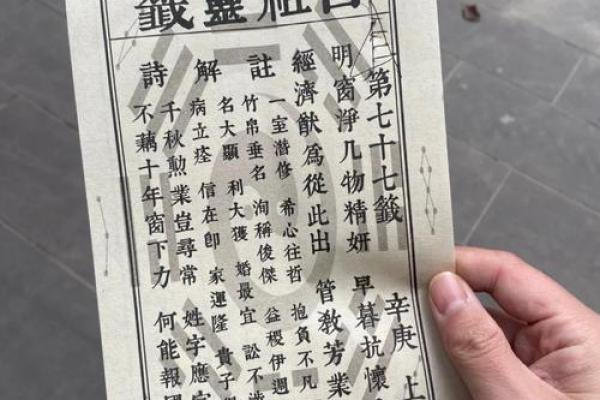 呂祖靈籤
第七十七籤 辛庚 上
明窗淨几物精妍 早暮抗懷
經濟猷爲從此出 管敎芳業
註 一室潛修 希心往哲 抱負不凡
竹帛垂名 洵稱俊傑 益稷伊週
解 名大顯 利大獲 婚最宜 訟不
病立痊 信在卽 家運隆 貴子
詩 千秋勳業豈尋常 姓字應
不藉十年窗下力 何能報